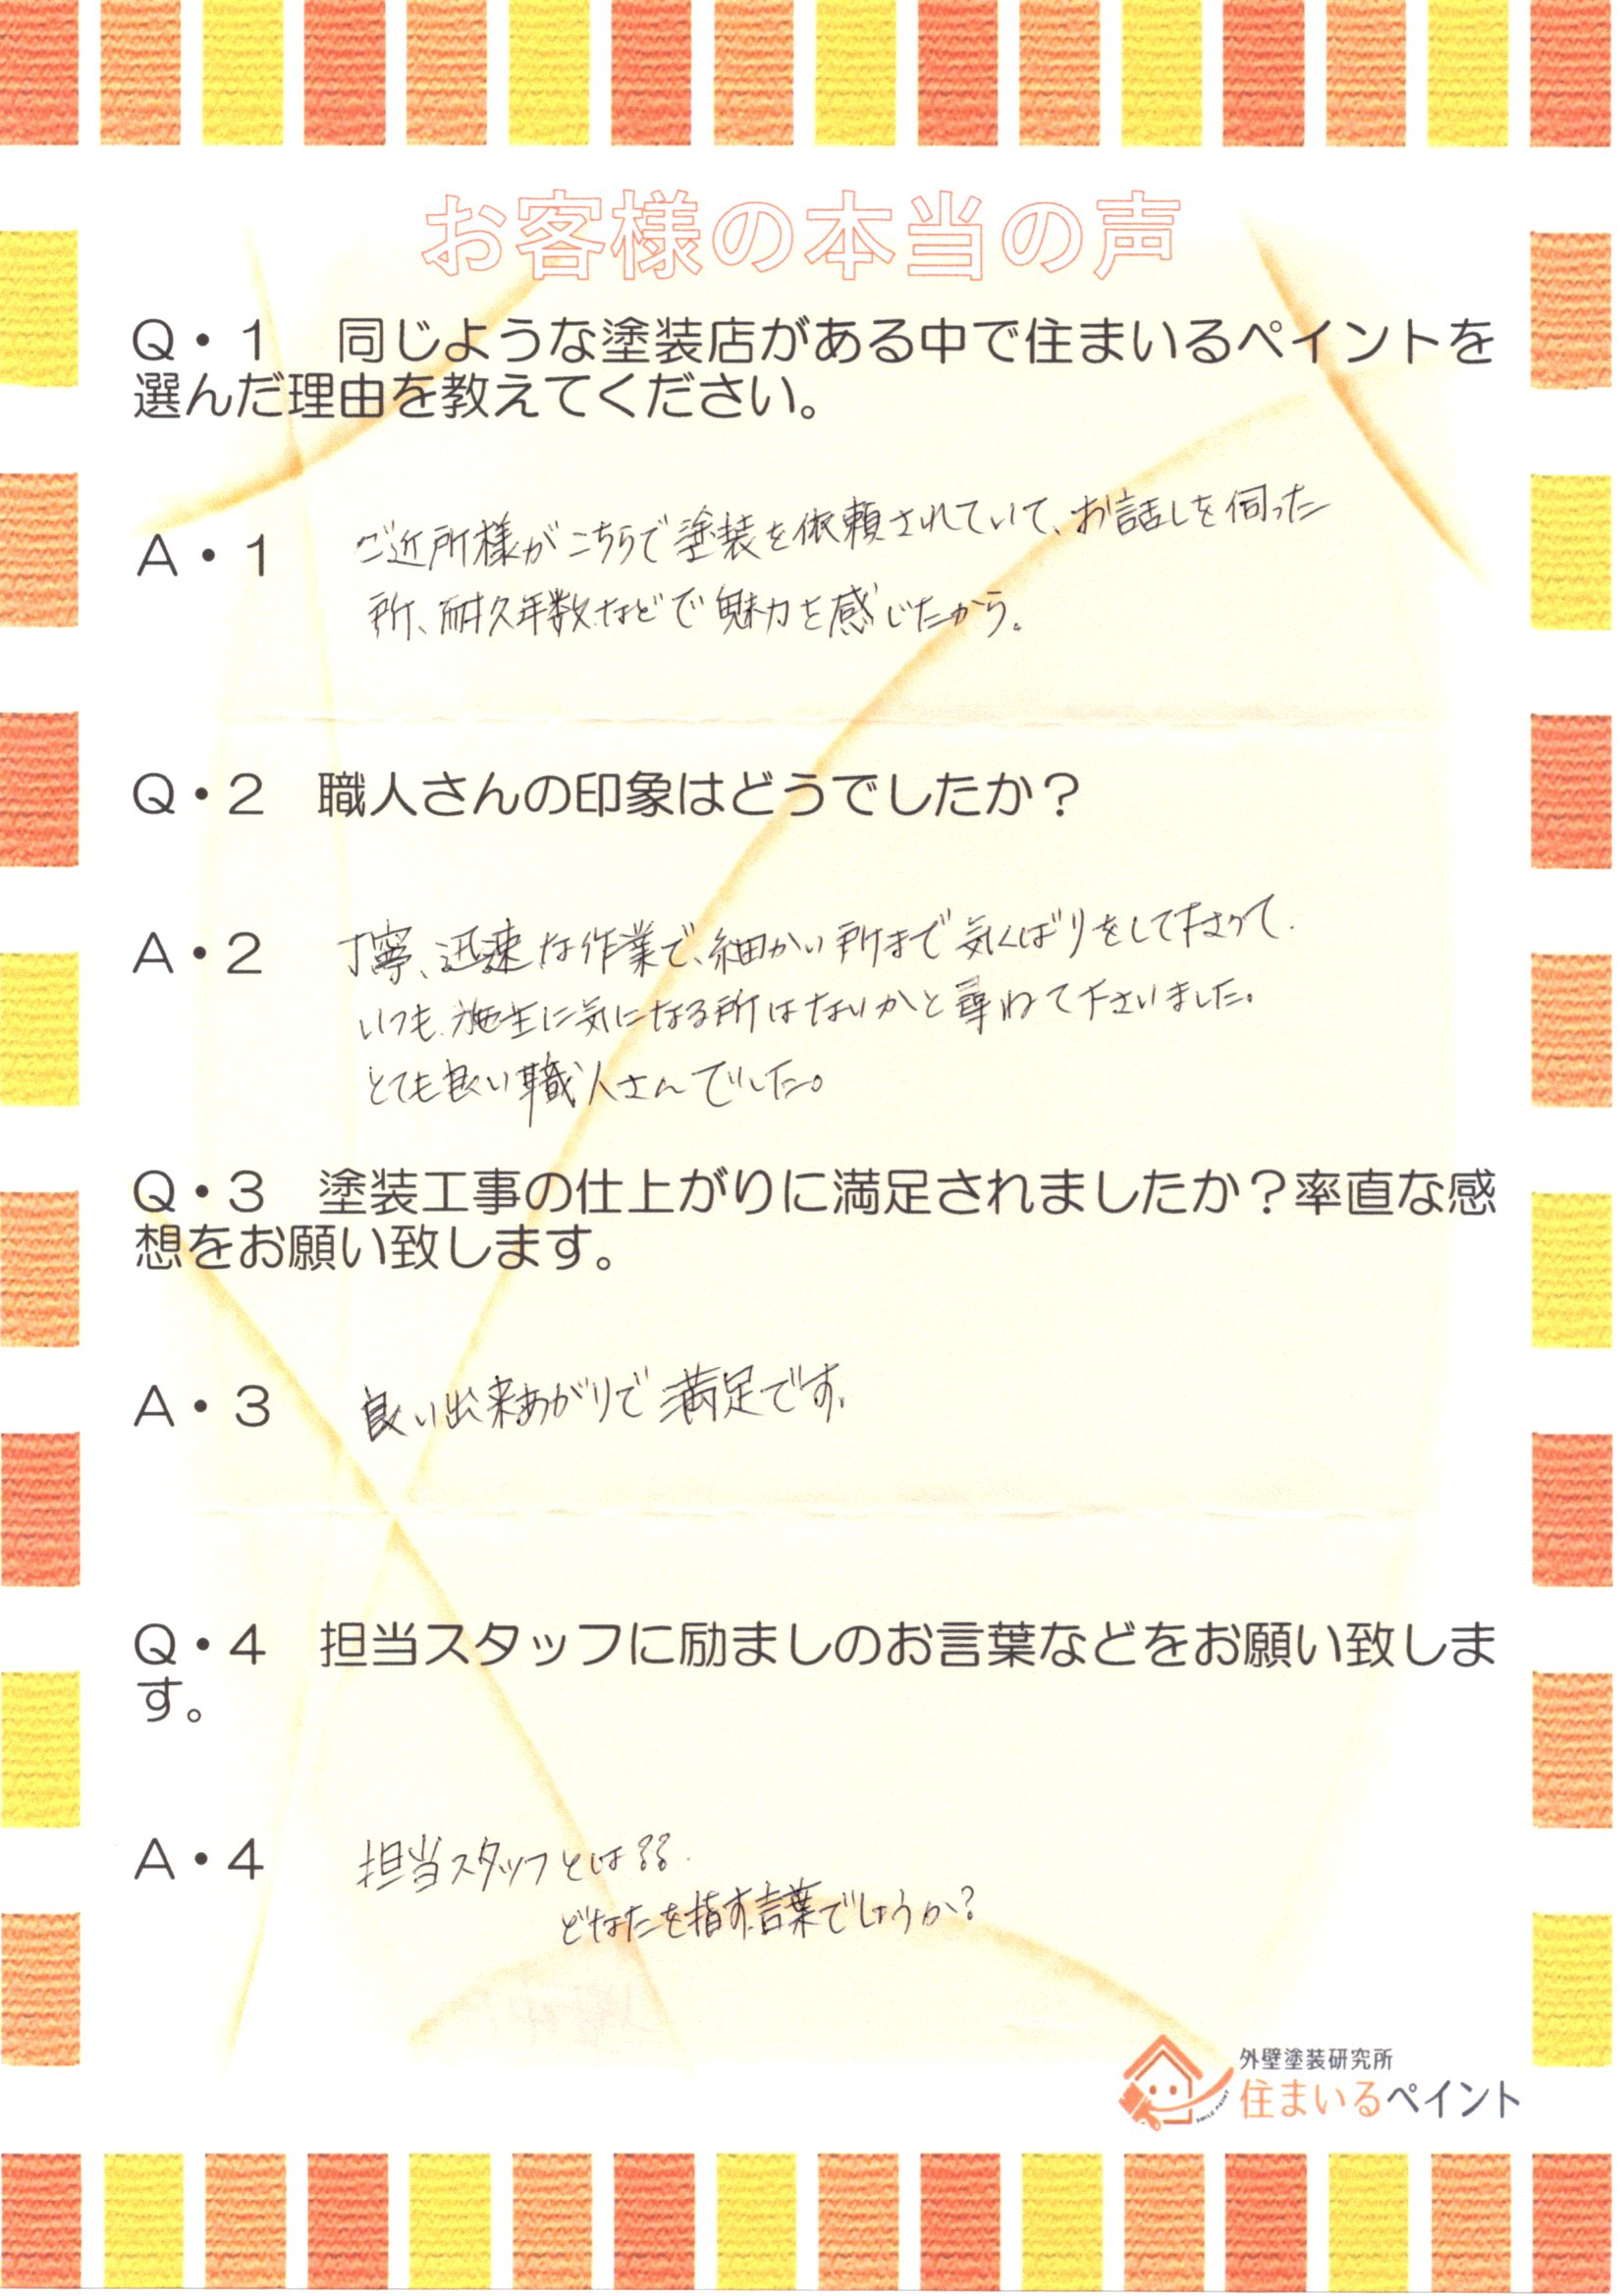 お客様の本当の声
Q・1　同じような塗装店がある中で住まいるペイントを
選んだ理由を教えてください。
A・1　ご近所様がこちらで塗装を依頼されていて、お話しを伺った
所、耐久年数などで魅力を感じたから。
Q・2　職人さんの印象はどうでしたか？
A・2　丁寧、迅速な作業で、細かい所まで気くばりをして下さって、
いつも施主に気になる所はないかと尋ねて下さいました。
とても良い職人さんでした。
Q・3　塗装工事の仕上がりに満足されましたか？率直な感
想をお願い致します。
A・3　良い出来あがりで満足です。
Q・4　担当スタッフに励ましのお言葉などをお願い致しま
す。
A・4　担当スタッフとは??
どなたを指す言葉でしょうか?
外壁塗装研究所
住まいるペイント
SMILE PAINT